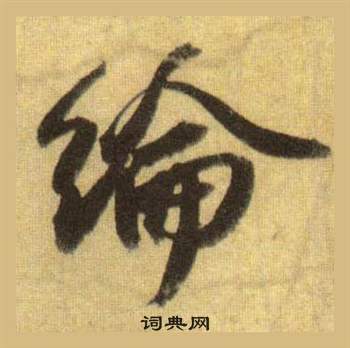 綸
词典网